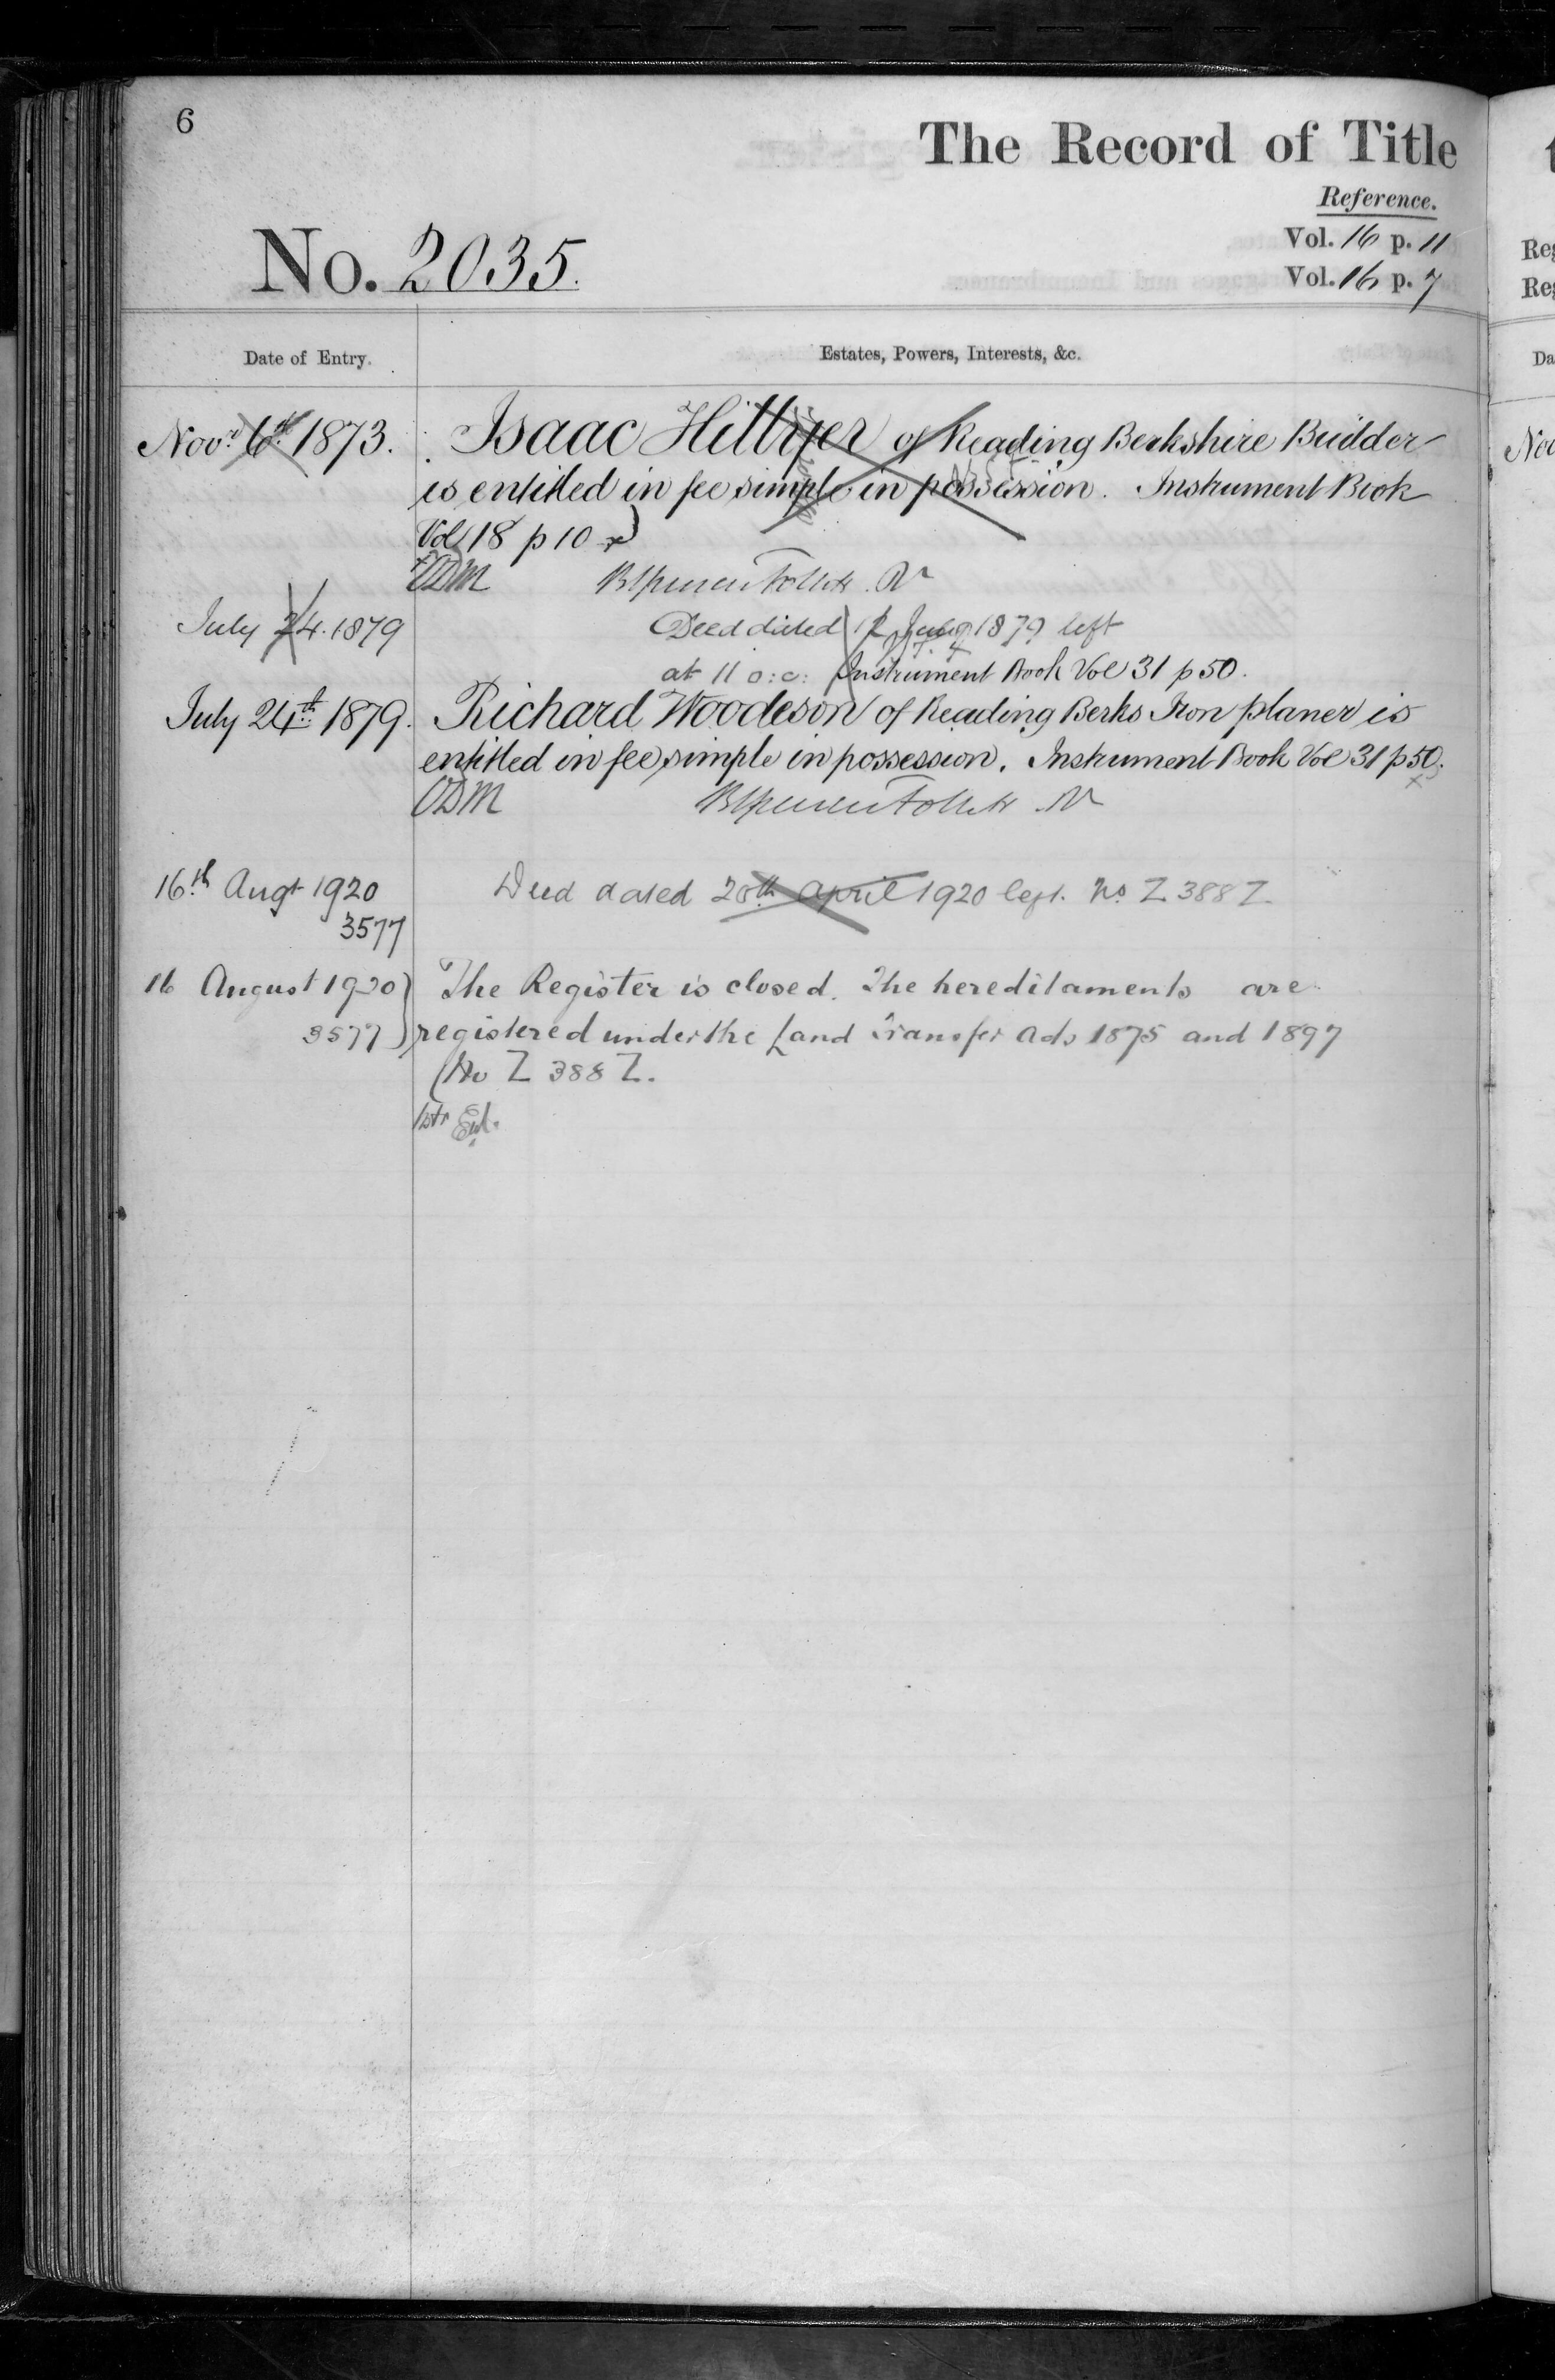 6
The Record of Title
Reference.
No. 2035.
Vol. 16 p. 11
Vol. 16 p. 7
Date of Entry.
Estates, Powers, Interests, &c.
Novr 6th 1873.
Isaac Hillyer of Reading Berkshire Builder
is entitled in fee simple in possession. Instrument Book
Vol 18 p 10
July 24. 1879
Deed dated 12 July 1879 left
at 11 o:c: Instrument Book Vol 31 p 50.
July 24th 1879.
Richard Woodeson of Reading Berks Iron planer is
entitled in fee simple in possession. Instrument Book Vol 31 p 50.
16th Augt 1920
3577
Deed dated 20th April 1920 left. No Z 388 Z
16 August 1920
3577
The Register is closed. The hereditaments are
registered under the Land Transfer Acts 1875 and 1897
(No Z 388 Z.
Reg
Reg
Da
Nov